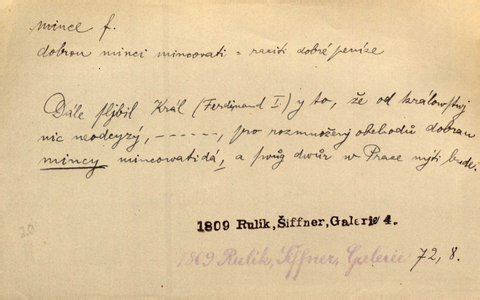 mince f.
dobrou minci mincovati = raziti dobré peníze
Dále sljbil Král (Ferdinand I.) y to, že od králowstwj
nic neodcyzý, ------, pro rozmnožený obchodů dobrau
mincy mincowati dá, a swůg dwůr w Praze mjti bude.
1809 Rulík, Šiffner, Galerie 4.
1809 Rulík, Šiffner, Galerie 72, 8.